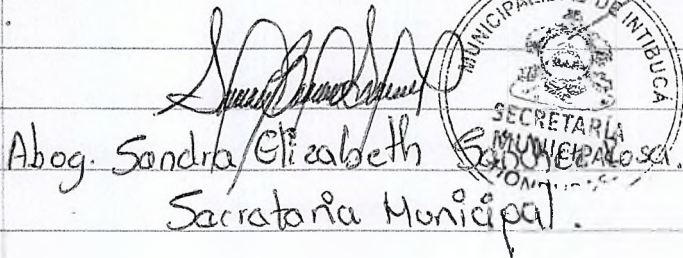 MUNICIPALIDAD DE INTIBUCÁ
SECRETARÍA
MUNICIPAL
Abog. Sandra Elizabeth Sánchez Sosa.
Secretaria Municipal.